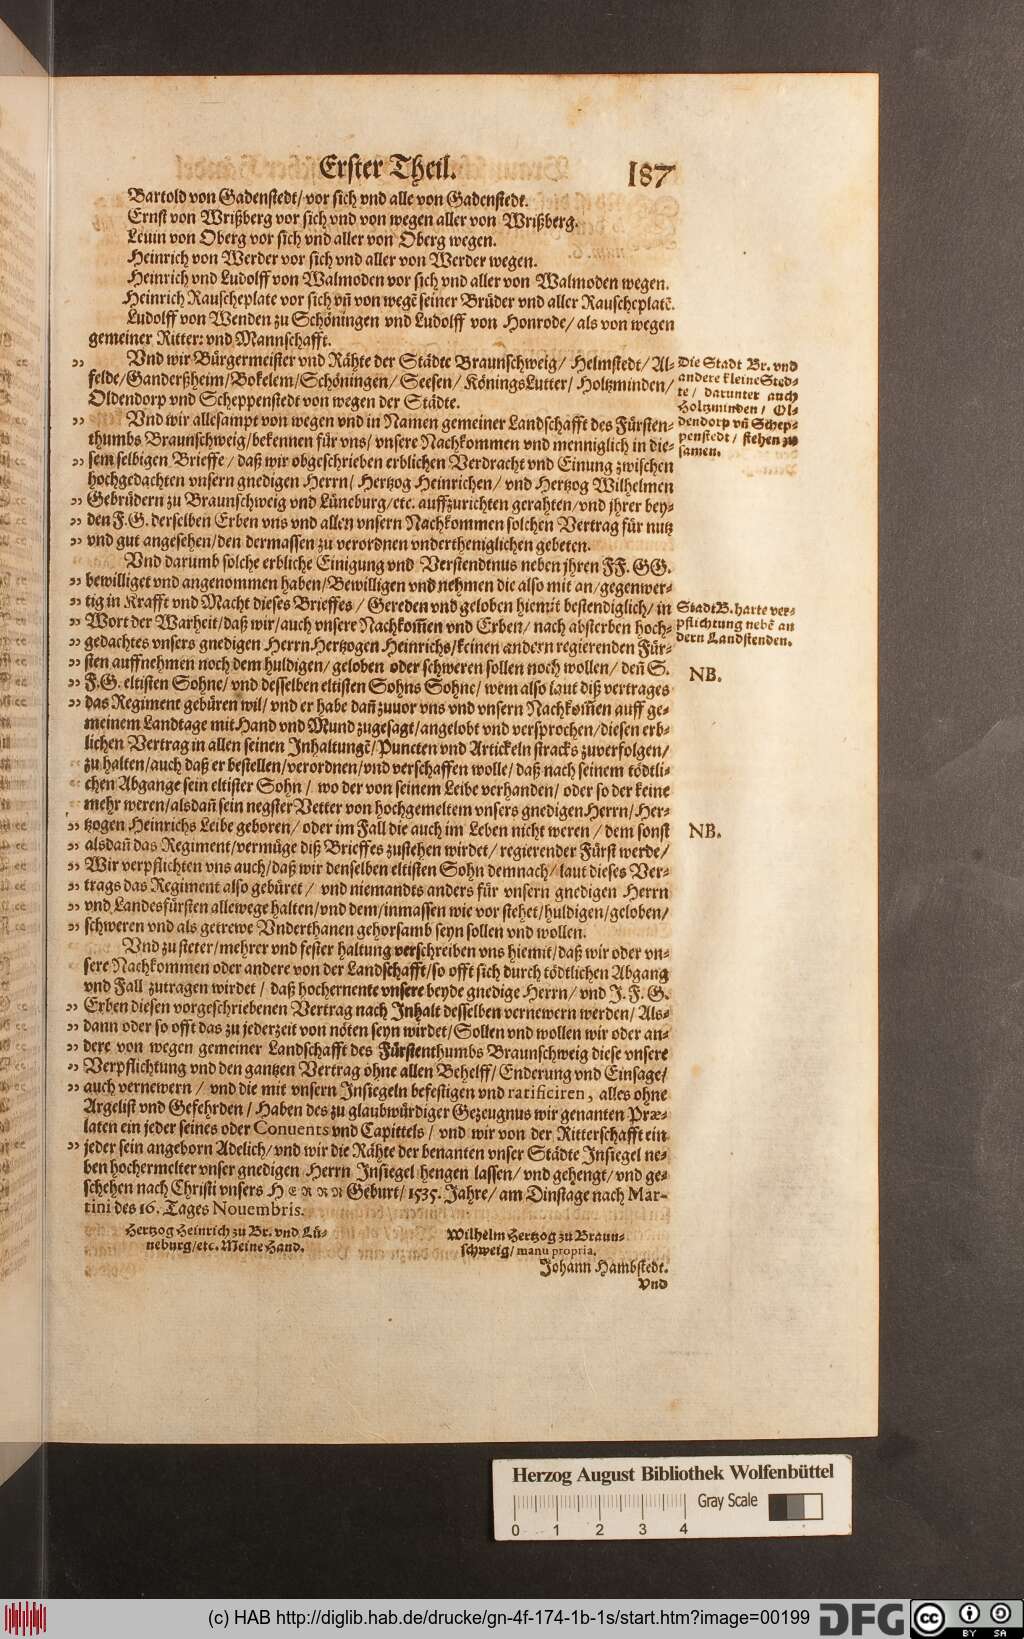 Erster Theil. 187
Bartold von Gadenstedt/ vor sich vnd alle von Gadenstedt.
Ernst von Wrißberg vor sich vnd von wegen aller von Wrißberg.
Leuin von Oberg vor sich vnd aller von Oberg wegen.
Heinrich von Werder vor sich vnd aller von Werder wegen.
Heinrich vnd Ludolff von Walmoden vor sich vnd aller von Walmoden wegen.
Heinrich Rauscheplate vor sich vñ von wegẽ seiner Brüder vnd aller Rauscheplatẽ.
Ludolff von Wenden zu Schöningen vnd Ludolff von Honrode/ als von wegen
gemeiner Ritter: vnd Mannschafft.
Vnd wir Bürgermeister vnd Rähte der Städte Braunschweig/ Helmstedt/ Al-
felde/ Ganderßheim/ Bokelem/ Schöningen/ Seesen/ KöningsLutter/ Holtzminden/
Oldendorp vnd Scheppenstedt von wegen der Städte.
Die Stadt Br. vnd
andere kleine Sted-
te/ darunter auch
Holtzminden/ Ol-
dendorp vñ Schep-
penstedt/ stehen zu
samen.
Vnd wir allesampt von wegen vnd in Namen gemeiner Landschafft des Fürsten-
thumbs Braunschweig/ bekennen für vns/ vnsere Nachkommen vnd menniglich in die-
sem selbigen Brieffe/ daß wir obgeschrieben erblichen Verdracht vnd Einung zwischen
hochgedachten vnsern gnedigen Herrn/ Hertzog Heinrichen/ vnd Hertzog Wilhelmen
Gebrüdern zu Braunschweig vnd Lüneburg/ etc. auffzurichten gerahten/ vnd jhrer bey-
den F. G. derselben Erben vns vnd allen vnsern Nachkommen solchen Vertrag für nutz
vnd gut angesehen/ den dermassen zu verordnen vndertheniglichen gebeten.
Vnd darumb solche erbliche Einigung vnd Verstendtnus neben jhren FF. GG.
bewilliget vnd angenommen haben/ Bewilligen vnd nehmen die also mit an/ gegenwer-
tig in Krafft vnd Macht dieses Brieffes/ Gereden vnd geloben hiemit bestendiglich/ in
Wort der Warheit/ daß wir/ auch vnsere Nachkom̃en vnd Erben/ nach absterben hoch-
gedachtes vnsers gnedigen Herrn Hertzogen Heinrichs/ keinen andern regierenden Für-
sten auffnehmen noch dem huldigen/ geloben oder schweren sollen noch wollen/ deñ S.
F. G. eltisten Sohne/ vnd desselben eltisten Sohns Sohne/ wem also laut diß vertrages
das Regiment gebüren wil/ vnd er habe dañ zuuor vns vnd vnsern Nachkom̃en auff ge-
meinem Landtage mit Hand vnd Mund zugesagt/ angelobt vnd versprochen/ diesen erb-
lichen Vertrag in allen seinen Inhaltungẽ/ Puncten vnd Artickeln stracks zuverfolgen/
zu halten/ auch daß er bestellen/ verordnen/ vnd verschaffen wolle/ daß nach seinem tödtli-
chen Abgange sein eltister Sohn/ wo der von seinem Leibe verhanden/ oder so der keine
mehr weren/ alsdañ sein negster Vetter von hochgemeltem vnsers gnedigen Herrn/ Her-
tzogen Heinrichs Leibe geboren/ oder im Fall die auch im Leben nicht weren/ dem sonst
alsdañ das Regiment/ vermüge diß Brieffes zustehen wirdet/ regierender Fürst werde/
Wir verpflichten vns auch/ daß wir denselben eltisten Sohn demnach/ laut dieses Ver-
trags das Regiment also gebüret/ vnd niemandts anders für vnsern gnedigen Herrn
vnd Landesfürsten allewege halten/ vnd dem/ inmassen wie vor stehet/ huldigen/ geloben/
schweren vnd als getrewe Vnderthanen gehorsamb seyn sollen vnd wollen.
Stadt B. harte ver-
pflichtung nebẽ an
dern Landstenden.
NB.
NB.
Vnd zu steter/ mehrer vnd fester haltung verschreiben vns hiemit/ daß wir oder vn-
sere Nachkommen oder andere von der Landschafft/ so offt sich durch tödtlichen Abgang
vnd Fall zutragen wirdet/ daß hochernente vnsere beyde gnedige Herrn/ vnd J. F. G.
Erben diesen vorgeschriebenen Vertrag nach Inhalt desselben vernewern werden/ Als-
dann oder so offt das zu jederzeit von nöten seyn wirdet/ Sollen vnd wollen wir oder an-
dere von wegen gemeiner Landschafft des Fürstenthumbs Braunschweig diese vnsere
Verpflichtung vnd den gantzen Vertrag ohne allen Behelff/ Enderung vnd Einsage/
auch vernewern/ vnd die mit vnsern Insiegeln befestigen vnd ratificiren, alles ohne
Argelist vnd Gefehrden/ Haben des zu glaubwürdiger Gezeugnus wir genanten Præ-
laten ein jeder seines oder Conuents vnd Capittels/ vnd wir von der Ritterschafft ein
jeder sein angeborn Adelich/ vnd wir die Rähte der benanten vnser Städte Insiegel ne-
ben hochermelter vnser gnedigen Herrn Insiegel hengen lassen/ vnd gehengt/ vnd ge-
schehen nach Christi vnsers HERRN Geburt/ 1535. Jahre/ am Dinstage nach Mar-
tini des 16. Tages Nouembris.
Hertzog Heinrich zu Br. vnd Lü-
neburg/ etc. Meine Hand.
Wilhelm Hertzog zu Braun-
schweig/ manu propria.
Johann Hambstedt.
Vnd
Herzog August Bibliothek Wolfenbüttel
Gray Scale
0 1 2 3 4
(c) HAB http://diglib.hab.de/drucke/gn-4f-174-1b-1s/start.htm?image=00199
DFG
cc BY SA